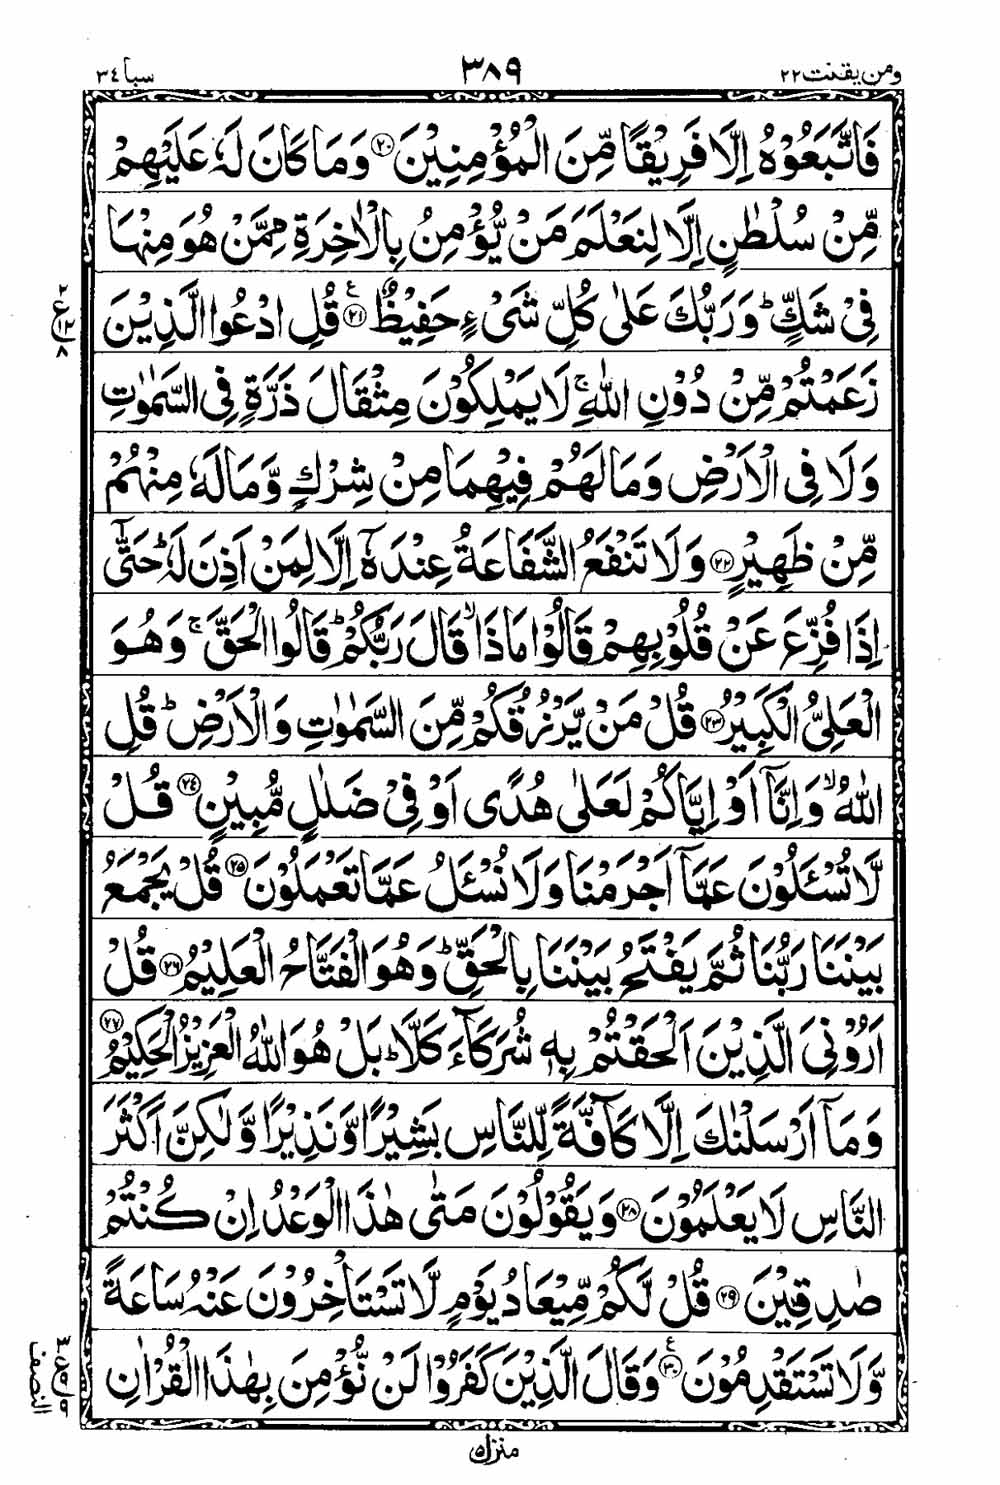 ومن يقنت ٢٢
٣٨٩
سبا ٣٤
فَاتَّبَعُوْهُ اِلَّا فَرِيْقًا مِّنَ الْمُؤْمِنِيْنَ ۟۝۲۰ وَمَا كَانَ لَهٗ عَلَيْهِمْ
مِّنْ سُلْطٰنٍ اِلَّا لِنَعْلَمَ مَنْ يُّؤْمِنُ بِالْاٰخِرَةِ مِمَّنْ هُوَ مِنْهَا
فِىْ شَكٍّ ؕ وَرَبُّكَ عَلٰى كُلِّ شَىْءٍ حَفِيْظٌ ۝۲۱ ع قُلِ ادْعُوا الَّذِيْنَ
زَعَمْتُمْ مِّنْ دُوْنِ اللّٰهِ ۚ لَا يَمْلِكُوْنَ مِثْقَالَ ذَرَّةٍ فِى السَّمٰوٰتِ
وَلَا فِى الْاَرْضِ وَمَا لَهُمْ فِيْهِمَا مِنْ شِرْكٍ وَّمَا لَهٗ مِنْهُمْ
مِّنْ ظَهِيْرٍ ۝۲۲ وَلَا تَنْفَعُ الشَّفَاعَةُ عِنْدَهٗۤ اِلَّا لِمَنْ اَذِنَ لَهٗ ؕ حَتّٰۤى
اِذَا فُزِّعَ عَنْ قُلُوْبِهِمْ قَالُوْا مَاذَا ۙ قَالَ رَبُّكُمْ ؕ قَالُوا الْحَقَّ ۚ وَهُوَ
الْعَلِىُّ الْكَبِيْرُ ۝۲۳ قُلْ مَنْ يَّرْزُقُكُمْ مِّنَ السَّمٰوٰتِ وَالْاَرْضِ ؕ قُلِ
اللّٰهُ ۙ وَاِنَّاۤ اَوْ اِيَّاكُمْ لَعَلٰى هُدًى اَوْ فِىْ ضَلٰلٍ مُّبِيْنٍ ۝۲٤ قُلْ
لَّا تُسْـَٔلُوْنَ عَمَّاۤ اَجْرَمْنَا وَلَا نُسْـَٔلُ عَمَّا تَعْمَلُوْنَ ۝۲۵ قُلْ يَجْمَعُ
بَيْنَنَا رَبُّنَا ثُمَّ يَفْتَحُ بَيْنَنَا بِالْحَقِّ ؕ وَهُوَ الْفَتَّاحُ الْعَلِيْمُ ۝۲٦ قُلْ
اَرُوْنِىَ الَّذِيْنَ اَلْحَقْتُمْ بِهٖ شُرَكَآءَ كَلَّا ؕ بَلْ هُوَ اللّٰهُ الْعَزِيْزُ الْحَكِيْمُ ۝۲۷
وَمَاۤ اَرْسَلْنٰكَ اِلَّا كَآفَّةً لِّلنَّاسِ بَشِيْرًا وَّنَذِيْرًا وَّلٰكِنَّ اَكْثَرَ
النَّاسِ لَا يَعْلَمُوْنَ ۝۲۸ وَيَقُوْلُوْنَ مَتٰى هٰذَا الْوَعْدُ اِنْ كُنْتُمْ
صٰدِقِيْنَ ۝۲۹ قُلْ لَّكُمْ مِّيْعَادُ يَوْمٍ لَّا تَسْتَاْخِرُوْنَ عَنْهُ سَاعَةً
وَّلَا تَسْتَقْدِمُوْنَ ۝۳۰ ع وَقَالَ الَّذِيْنَ كَفَرُوْا لَنْ نُّؤْمِنَ بِهٰذَا الْقُرْاٰنِ
٢ ع ١٢ ٨
النصف
منزل ٥